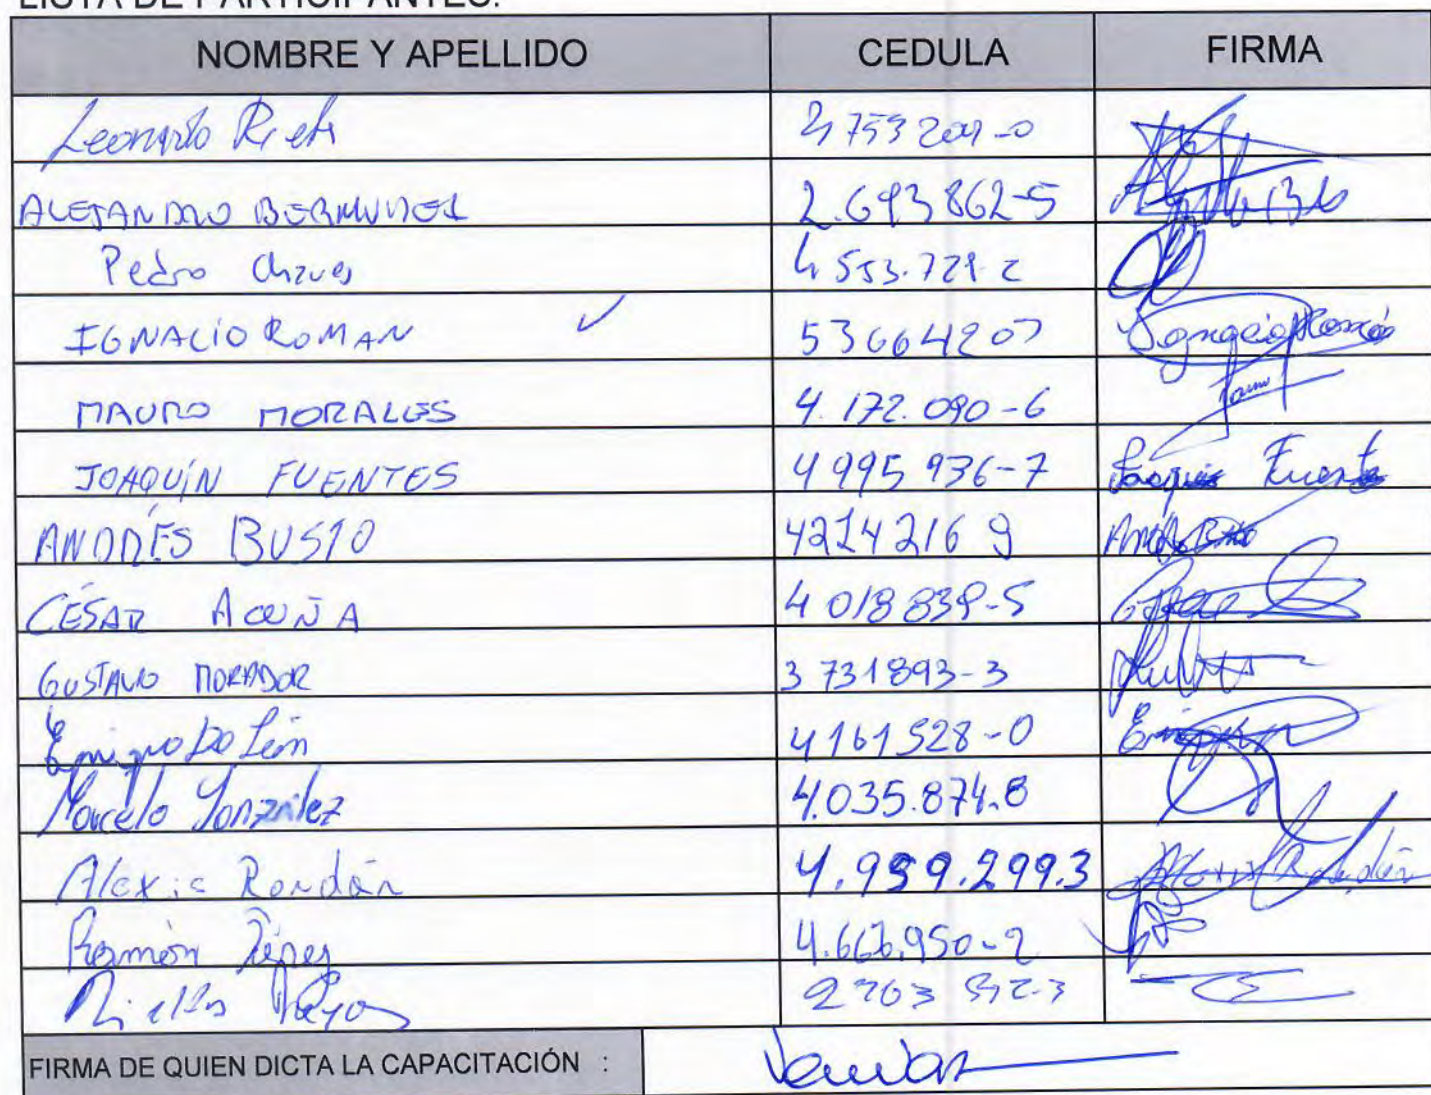 LISTA DE PARTICIPANTES:
NOMBRE Y APELLIDO CEDULA FIRMA
Leonardo
ALEJANDRO BERMUDEZ 2.693862-5
Pedro Chaves 4553.729-2
IGNACIO ROMAN ✓ 53664207 Ignacio Román
MAURO MORALES 4.172.090-6
JOAQUÍN FUENTES 4995936-7 Joaquin Fuentes
ANDRÉS BUSTO 42142169
CÉSAR ACUÑA 4018839-5 César
GUSTAVO MORADOR 3731893-3
Enrique De León 4161528-0
Marcelo González 4.035.874.8
Alexis Rondán 4.959.299.3 Alexis Rondán
Ramón 4.663.950-2
FIRMA DE QUIEN DICTA LA CAPACITACIÓN :